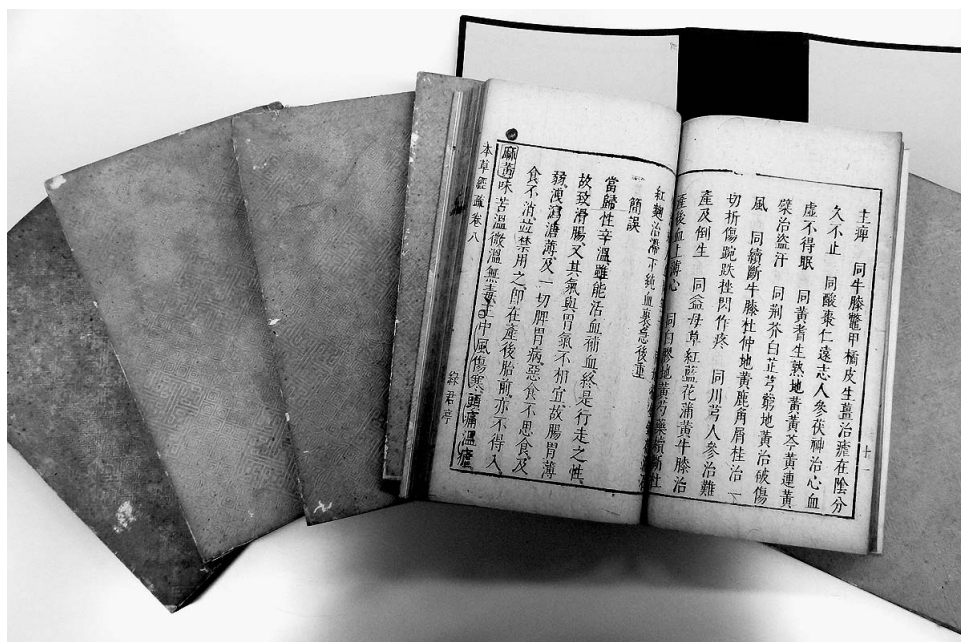 主痺　同牛膝鼈甲橘皮生薑治瘧在陰分
久不止　同酸棗仁遠志人參茯神治心血
虛不得眠　同黃耆生熟地黃黃芩黃連黃
蘗治盜汗　同荊芥白芷芎窮地黃治破傷
風　同續斷牛膝杜仲地黃鹿角屑桂治一
切折傷踠跌挫閃作疼　同川芎人參治難
產及倒生　同益母草紅藍花蒲黃牛膝治
產後血上薄心　同白膠地黃芍藥續斷杜
紅麴治滯下純血裏急後重
簡誤
當歸性辛溫雖能活血補血終是行走之性
故致滑腸又其氣與胃氣不相宜故腸胃薄
弱洩瀉溏薄及一切脾胃病惡食不思食及
食不消並禁用之即在產後胎前亦不得入
麻黃味苦溫微溫無毒主中風傷寒頭痛溫瘧
本草經疏卷八
綠君亭